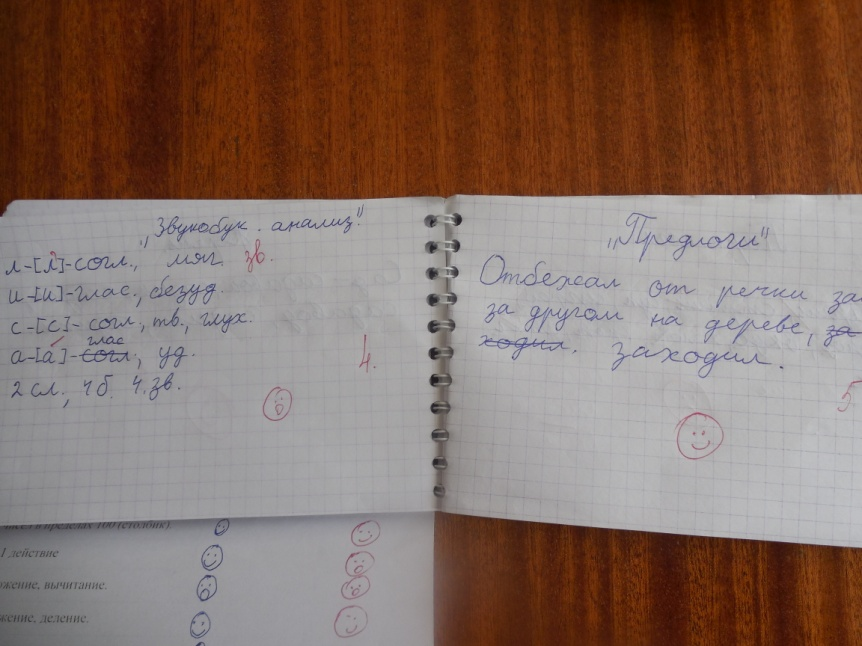 „Звукобук. анализ."
л-[л']-согл., мяг. зв.
и-[и]-глас., безуд.
с-[с]- согл., тв., глух.
глас
а-[а́]-согл, уд.
2 сл., 4 б. 4. зв.
4.
„Предлоги"
Отбежал от речки за
за другом на дереве, за
ходил. заходил.
5
в пределах 100 (столбик).
1 действие
жение, вычитание.
жение, деление.